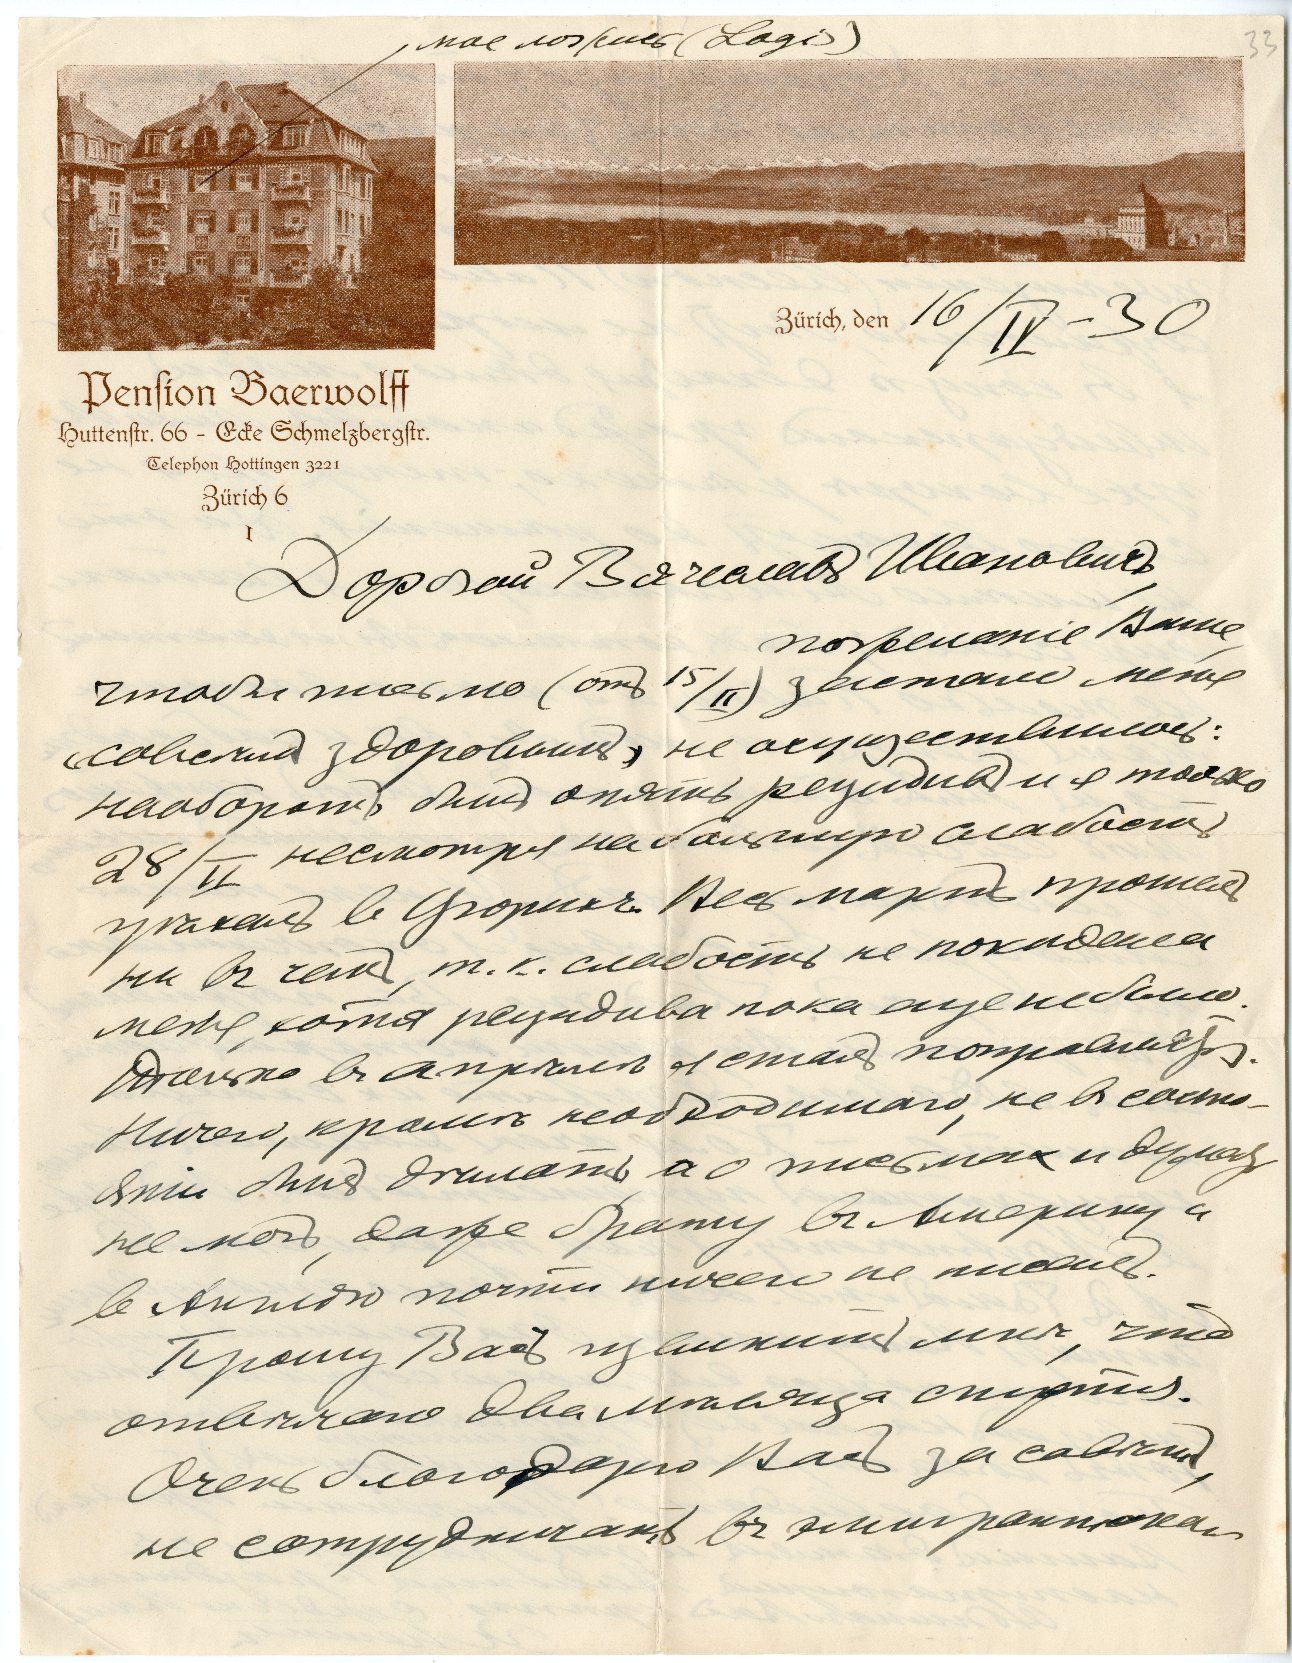 мое ложись (Logis)
33
Zürich, den 16/IV-30
Pension Baerwolff
Huttenstr. 66 - Ecke Schmelzbergstr.
Telephon Hottingen 3221
Zürich 6
I
Дорогой Вячеславъ Ивановичъ,
пожеланіе Ваше,
чтобы письмо (отъ 15/II) застало меня
«совсѣмъ здоровымъ» не осуществилось:
наоборотъ былъ опять рецидивъ и я только
28/II несмотря на большую слабость
уѣхалъ въ Цюрихъ. Весь мартъ прошелъ
ни въ чемъ, т. к. слабость не покидала
меня, хотя рецидива пока еще не было.
Только въ апрѣлѣ я сталъ поправляться.
Ничего, кромѣ необходимаго, не въ состо-
яніи былъ дѣлать, а о письмах и думать
не могъ, даже брату въ Америку и
въ Англію почти ничего не писалъ.
Прошу Васъ извинить мнѣ, что
отвѣчаю два мѣсяца спустя.
Очень благодарю Васъ за совѣтъ,
не сотрудничать въ эмигрантских